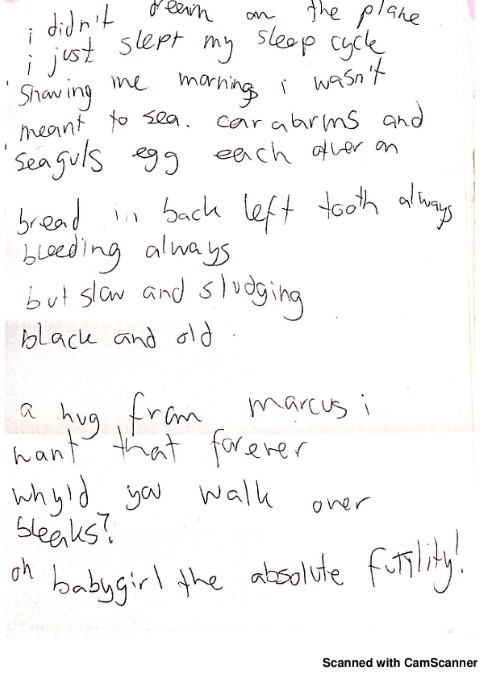 i didn't dream on the plane
i just slept my sleep cycle
showing me mornings i wasn't
meant to sea. car alarms and
seaguls egg each other on
bread in back left tooth always
bleeding always
but slow and sludging
black and old.
a hug from marcus i
want that forever
why'd you walk over
bleaks?
oh babygirl the absolute futility!
Scanned with CamScanner